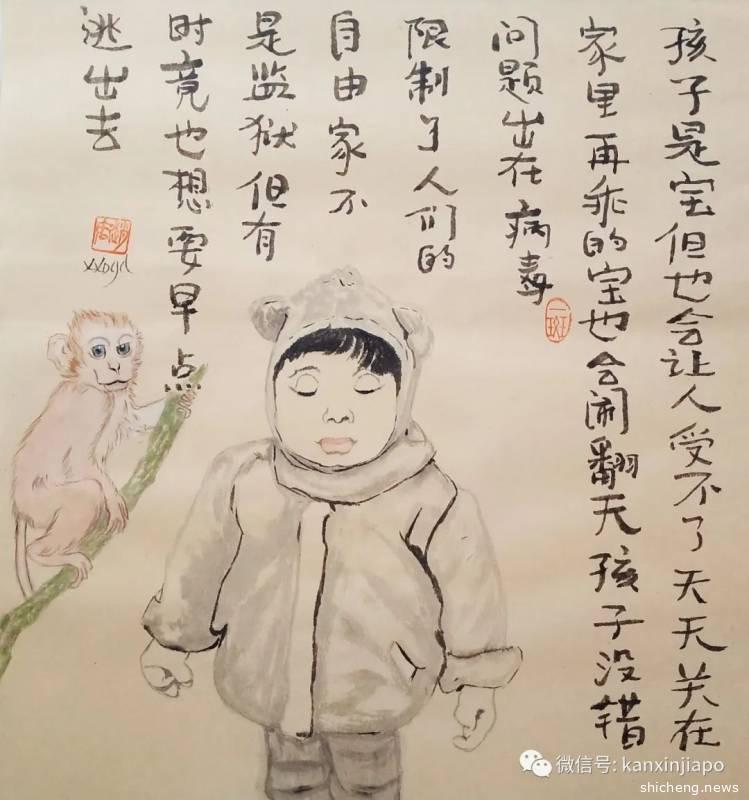 孩子是宝但也会让人受不了天天关在
家里再乖的宝也会闹翻天孩子没错
问题出在病毒
限制了人们的
自由家不
是监狱但有
时竟也想要早点
逃出去
一斑
微信号: kanxinjiapo
shicheng.news